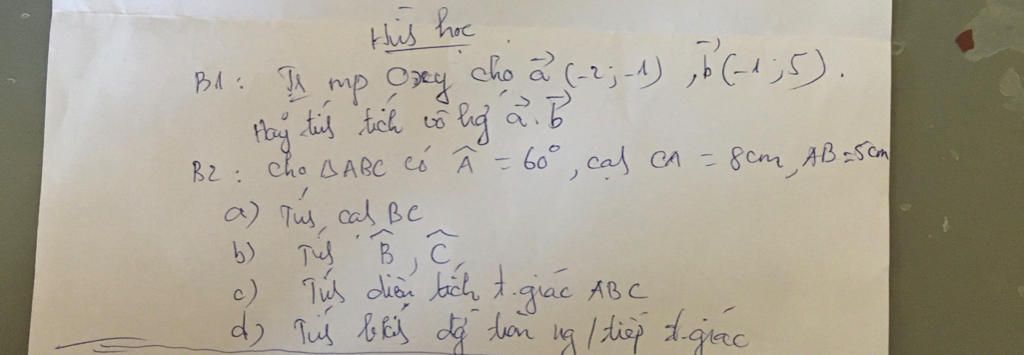 Hìh học
B1: Tr mp Oxy cho a⃗ (-2; -1), b⃗ (-1; 5).
Hãy tíh tích vô hg a⃗.b⃗
B2: cho ΔABC có Â = 60°, cạh CA = 8cm, AB = 5cm
a) Tíh cạh BC
b) Tíh B̂, Ĉ
c) Tíh diện tích t.giác ABC
d) Tíh bkíh đg tròn ng/tiếp t.giác